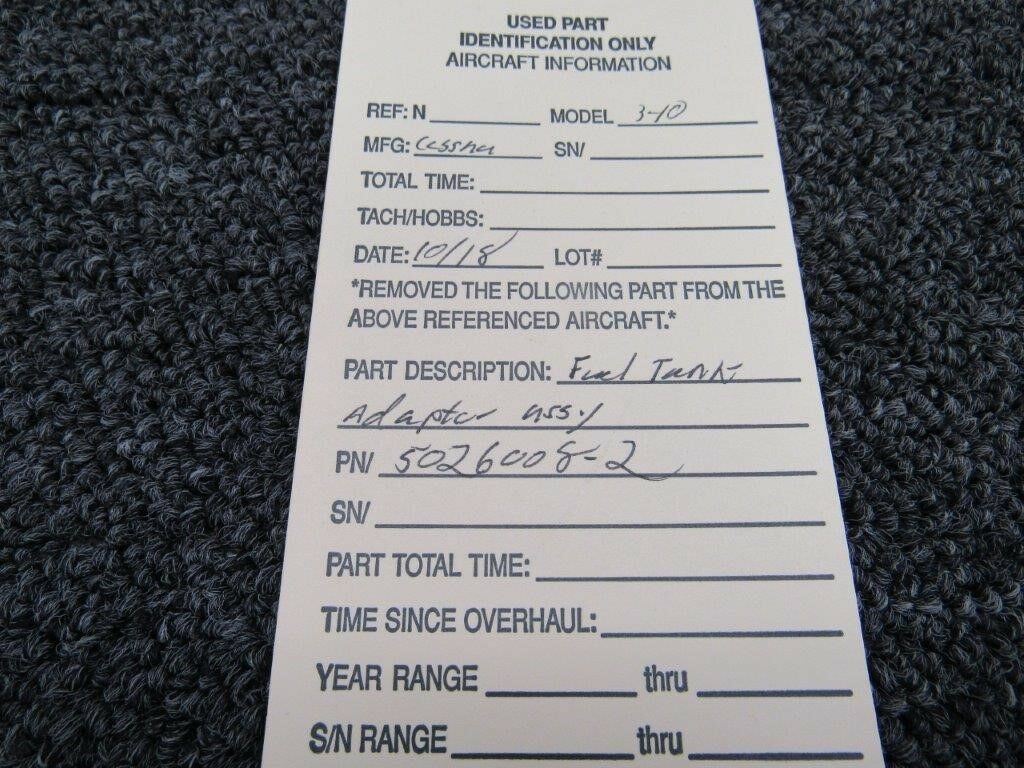 USED PART
IDENTIFICATION ONLY
AIRCRAFT INFORMATION
REF: N MODEL 340
MFG: Cessna SN/
TOTAL TIME:
TACH/HOBBS:
DATE: 10/18 LOT#
*REMOVED THE FOLLOWING PART FROM THE
ABOVE REFERENCED AIRCRAFT.*
PART DESCRIPTION: Fuel Tank
Adaptor assy
PN/ 5026008-2
SN/
PART TOTAL TIME:
TIME SINCE OVERHAUL:
YEAR RANGE thru
S/N RANGE thru